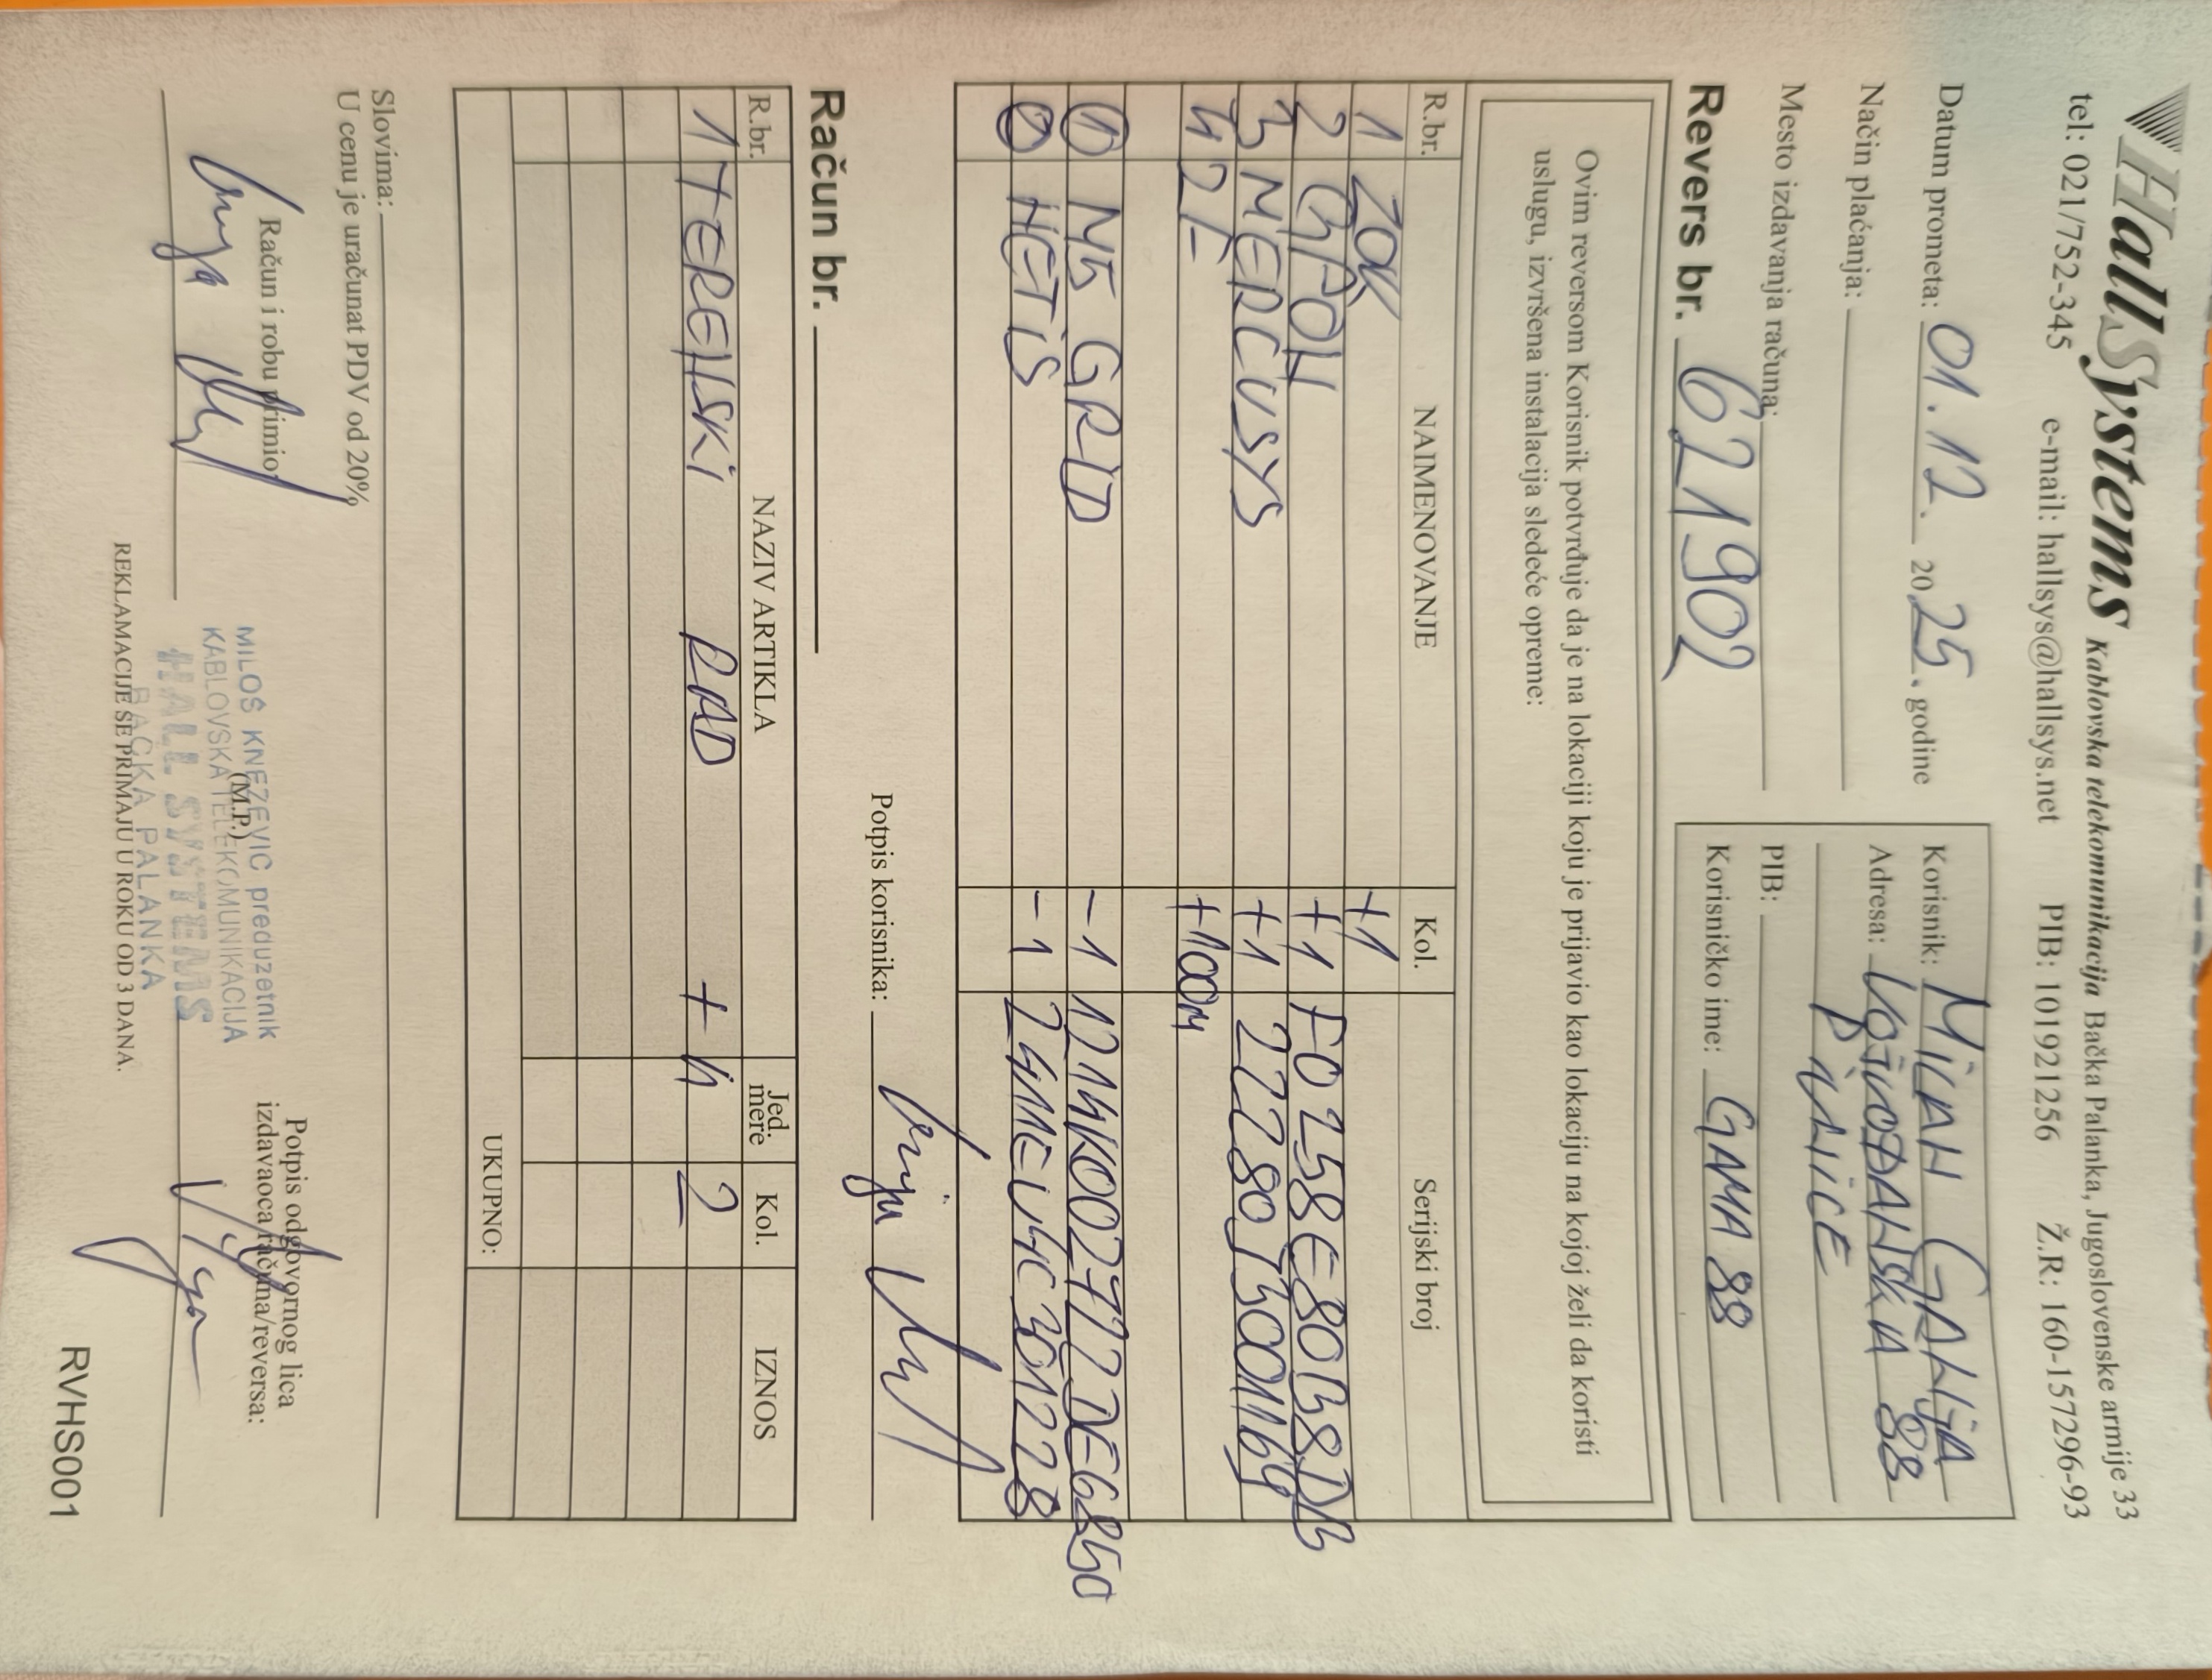 HallSystems Kablovska telekomunikacija Bačka Palanka, Jugoslovenske armije 33
tel: 021/752-345 e-mail: hallsys@hallsys.net PIB: 101921256 Ž.R: 160-157296-93
Datum prometa: 01.12. 2025. godine
Način plaćanja:
Mesto izdavanja računa:
Revers br. 621902
Korisnik: MILAN GALIJA
Adresa: VOJVOĐANSKA 88
PIB:
Korisničko ime: GAMA 88
Ovim reversom Korisnik potvrđuje da je na lokaciji koju je prijavio kao lokaciju na kojoj želi da koristi
uslugu, izvršena instalacija sledeće opreme:
R.br. NAIMENOVANJE Kol. Serijski broj
1 ZOK +1
2 GPON +1 F0258E80B8DB
3 MERCUSYS +1 22280J5001169
4 2F +100M
1 M5 GRID -1
0 METIS -1
Potpis korisnika:
Račun br.
R.br. NAZIV ARTIKLA Jed. mere Kol. IZNOS
1 TERENSKI RAD + h 2
UKUPNO:
Slovima:
U cenu je uračunat PDV od 20%
Račun i robu primio:
(M.P.)
Potpis odgovornog lica
izdavaoca računa/reversa:
MILOŠ KNEŽEVIĆ preduzetnik
KABLOVSKA TELEKOMUNIKACIJA
HALL SYSTEMS
BAČKA PALANKA
REKLAMACIJE SE PRIMAJU U ROKU OD 3 DANA.
RVHS001